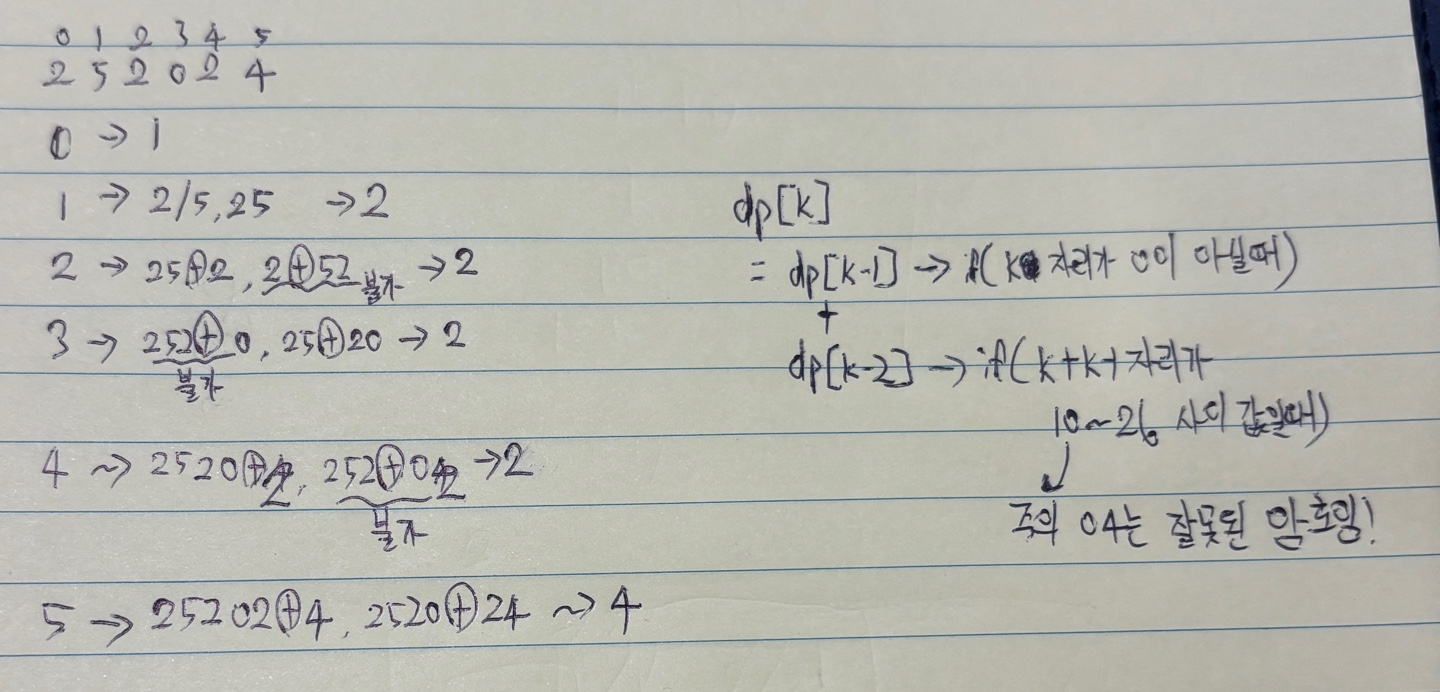 0 1 2 3 4 5
2 5 2 0 2 4
0 → 1
1 → 2/5, 25 → 2
2 → 25⊕2, 2⊕52 → 2
불가
3 → 252⊕0, 25⊕20 → 2
불가
4 ~> 2520⊕2, 252⊕02 → 2
불가
5 → 25202⊕4, 2520⊕24 ~> 4
dp[k]
= dp[k-1] → if( k 자리가 0이 아닐때)
+
dp[k-2] → if( k+k-1 자리가
10~26 사이 값일때)
↓
주의 04는 잘못된 암호임!